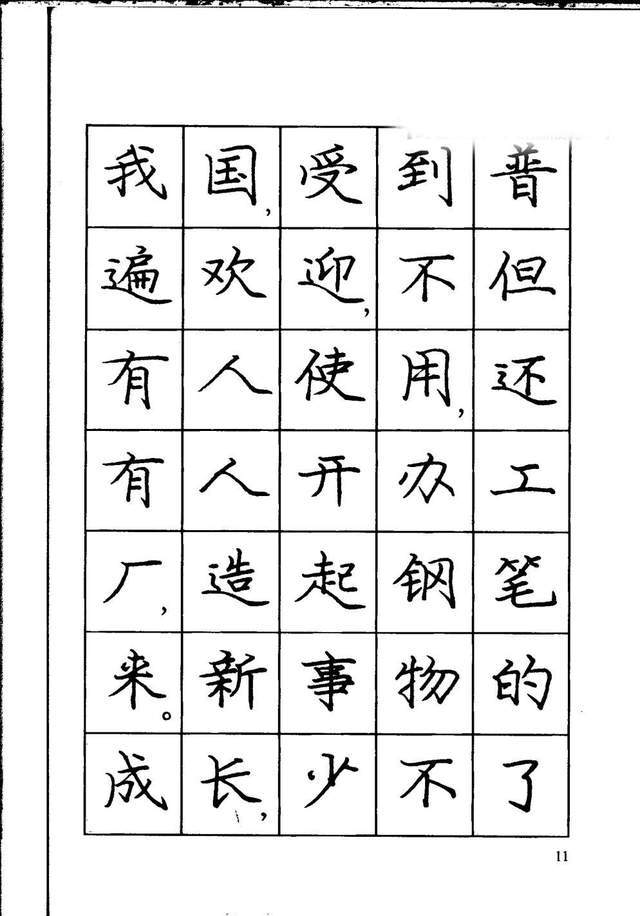 我国,受到普
遍欢迎,不但
有人使用,还
有人开办工
厂,造起钢笔
来。新事物的
成长,少不了
11